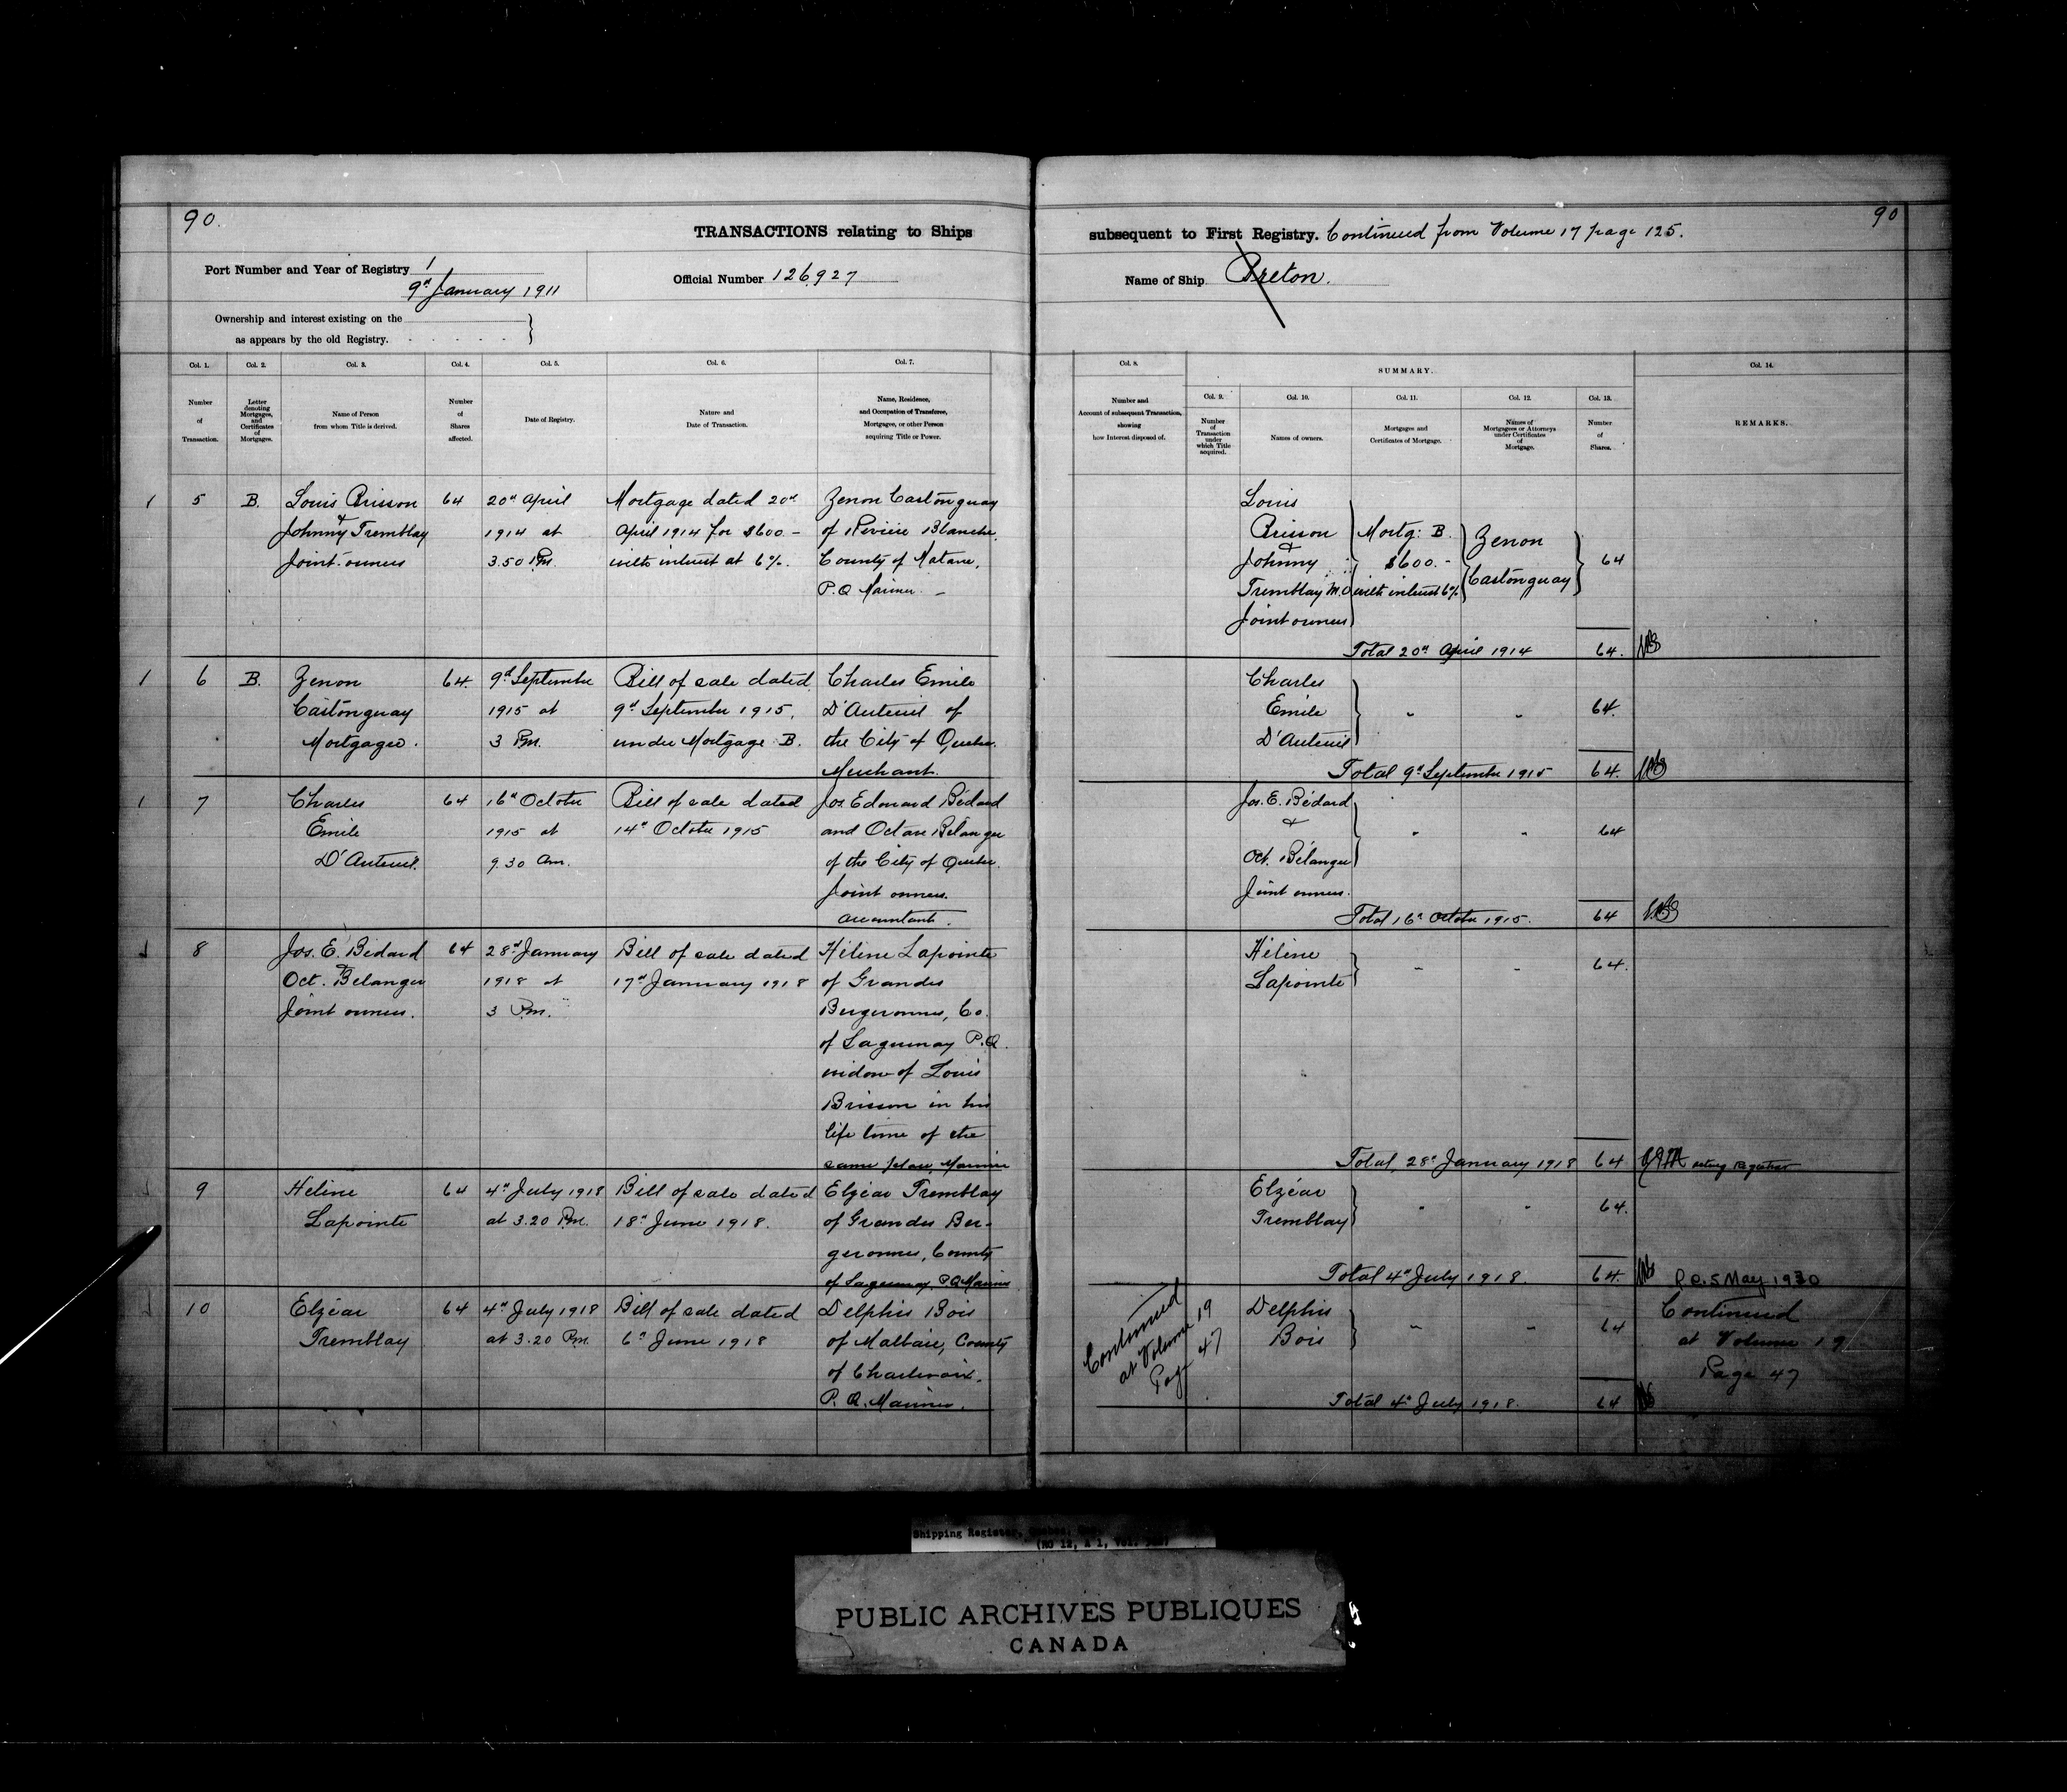 90.
90
TRANSACTIONS relating to Ships
subsequent to First Registry. Continued from Volume 17 page 125.
Port Number and Year of Registry 1
9th January 1911
Official Number 126,927
Name of Ship Breton.
Ownership and interest existing on the
as appears by the old Registry.
Col. 1.
Number
of
Transaction.
Col. 2.
Letter
denoting
Mortgages,
and
Certificates
of
Mortgages.
Col. 3.
Name of Person
from whom Title is derived.
Col. 4.
Number
of
Shares
affected.
Col. 5.
Date of Registry.
Col. 6.
Nature and
Date of Transaction.
Col. 7.
Name, Residence,
and Occupation of Transferee,
Mortgagee, or other Person
acquiring Title or Power.
Col. 8.
Number and
Account of subsequent Transaction,
showing
how Interest disposed of.
SUMMARY.
Col. 9.
Number
of
Transaction
under
which Title
acquired.
Col. 10.
Names of owners.
Col. 11.
Mortgages and
Certificates of Mortgage.
Col. 12.
Names of
Mortgagees or Attorneys
under Certificates
of
Mortgage.
Col. 13.
Number
of
Shares.
Col. 14.
REMARKS.
5
B.
Louis Brisson
&
Johnny Tremblay
Joint-owners
64
20th April
1914 at
3.50 Pm.
Mortgage dated 20th
April 1914 for $600 -
with interest at 6%.
Zenon Castonguay
of Rivière Blanche,
County of Matane,
P.Q Mariner. -
Louis
Brisson
&
Johnny
Tremblay M.O
Joint owners
Mortg: B.
$600.-
with interest 6%
Zenon
Castonguay
64
Total 20th April 1914
64.
6
B.
Zenon
Castonguay
Mortgagee.
64.
9th September
1915 at
3 Pm.
Bill of sale dated
9th September 1915,
under Mortgage B.
Charles Emile
D'Auteuil of
the City of Quebec.
Merchant.
Charles
Emile
D'Auteuil
64.
Total 9th September 1915
64.
7
Charles
Emile
D'Auteuil.
64
16th October
1915 at
9.30 am.
Bill of sale dated
14th October 1915
Jos. Edouard Bédard
and Octave Bélanger
of the City of Quebec.
Joint owners.
accountants.
Jos. E. Bédard
&
Oct. Bélanger
Joint owners.
64
Total 16th October 1915.
64
8
Jos. E. Bédard
&
Oct. Belanger
Joint owners.
64
28th January
1918 at
3 Pm.
Bill of sale dated
17th January 1918
Hélène Lapointe
of Grandes
Bergeronnes, Co.
of Saguenay P.Q.
widow of Louis
Brisson in his
life time of the
same place, Mariner
Hélène
Lapointe
64.
Total, 28th January 1918
64
acting registrar
9
Helène
Lapointe
64
4th July 1918
at 3.20 Pm.
Bill of sale dated
18th June 1918.
Elzéar Tremblay
of Grandes Ber-
geronnes, County
of Saguenay. P.Q Mariner
Elzéar
Tremblay
64.
Total 4th July 1918.
64.
P.C. 5 May 1930
10
Elzéar
Tremblay
64
4th July 1918
at 3.20 Pm.
Bill of sale dated
6th June 1918
Delphis Bois
of Malbaie, County
of Charlevoix,
P.Q. Mariner.
Continued
at Volume 19
Page 47
Delphis
Bois
64
Continued
at Volume 19
Page 47
Total 4th July 1918.
64
Shipping Register,
PUBLIC ARCHIVES PUBLIQUES
CANADA